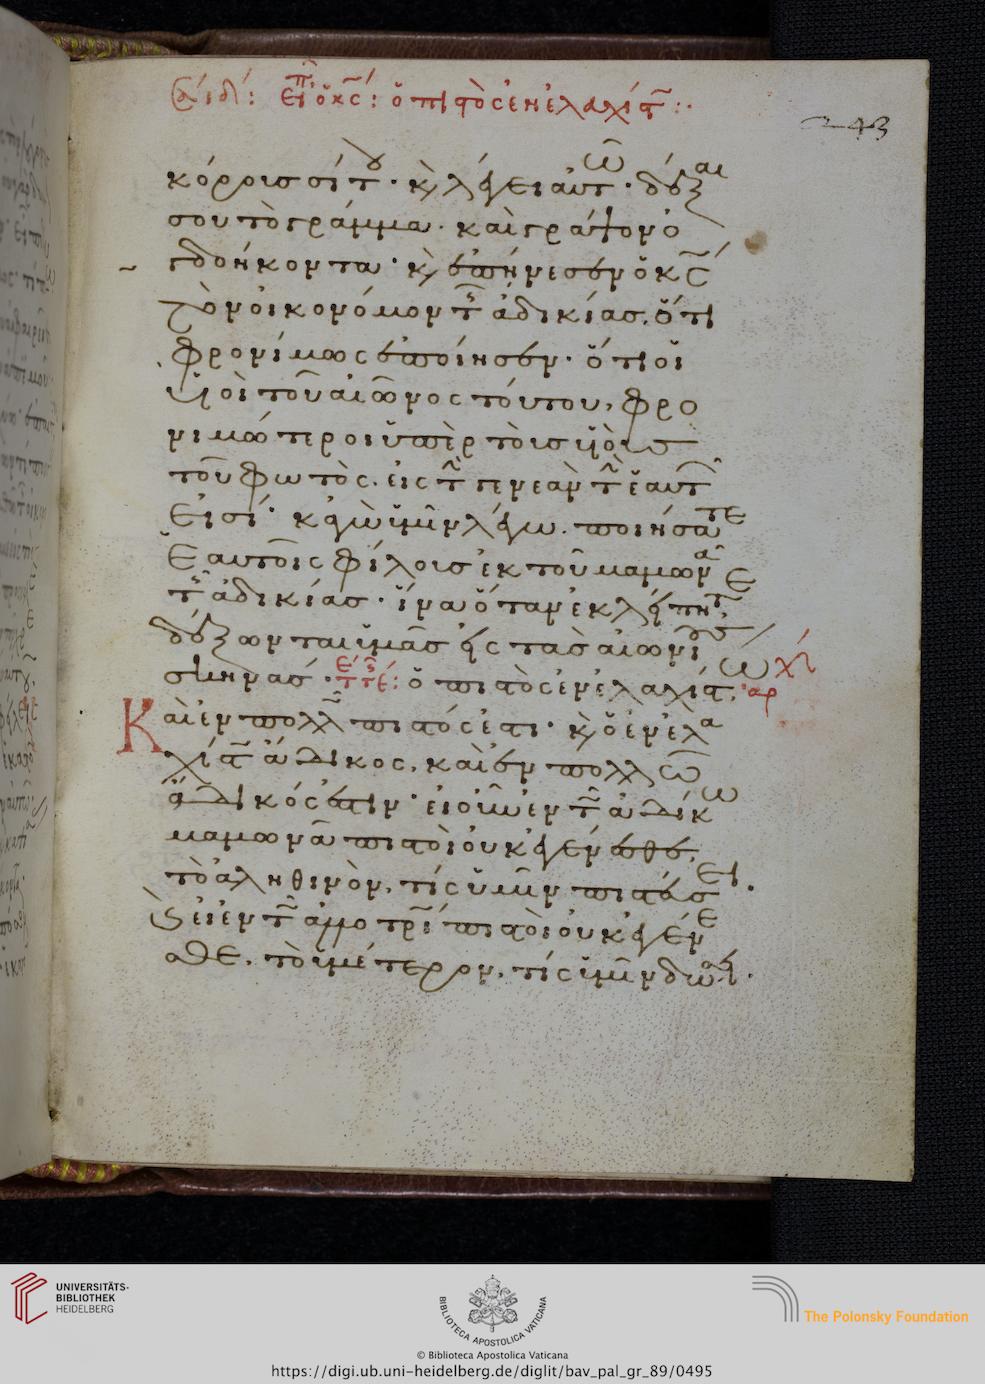 εἶπ ὁ κς: ὁ πιστὸς ἐν ἐλαχίστ:
243
κόροις σίτου· κ λέγει αὐτῶ· δέξαι
σου τὸ γράμμα· καὶ γράψον ὀ
γδοήκοντα· κ ἐπήνεσεν ὁ κς
τὸν οἰκονόμον τῆς ἀδικίας, ὅτι
φρονίμως ἐποίησεν· ὅτι οἱ
υἱοὶ τοῦ αἰῶνος τούτου, φρο
νιμώτεροι ὑπὲρ τοὺς υἱοὺς
τοῦ φωτὸς. εἰς τὴν γενεὰν τὴν ἑαυτῶν
εἰσί· κἀγὼ ὑμῖν λέγω. ποιήσατε
ἑαυτοῖς φίλους ἐκ τοῦ μαμωνᾶ
τῆς ἀδικίας· ἵνα ὅταν ἐκλίπητε,
δέξωνται ὑμᾶς εἰς τὰς αἰωνίους
σκηνάς· ὁ πιστὸς ἐν ἐλαχίστω,
Καὶ ἐν πολλῶ πιστός ἐστι· κ ὁ ἐν ἐλα
χίστω ἄδικος, καὶ ἐν πολλῶ
ἄδικός ἐστιν· εἰ οὖν ἐν τῶ ἀδίκω
μαμωνᾶ πιστοὶ οὐκ ἐγένεσθε,
τὸ ἀληθινὸν, τίς ὑμῖν πιστεύσει.
κ εἰ ἐν τῶ ἀλλοτρίω πιστοὶ οὐκ ἐγένε
σθε, τὸ ὑμέτερον, τίς ὑμῖν δώσει.
UNIVERSITÄTS-
BIBLIOTHEK
HEIDELBERG
BIBLIOTECA APOSTOLICA VATICANA
The Polonsky Foundation
© Biblioteca Apostolica Vaticana
https://digi.ub.uni-heidelberg.de/diglit/bav_pal_gr_89/0495